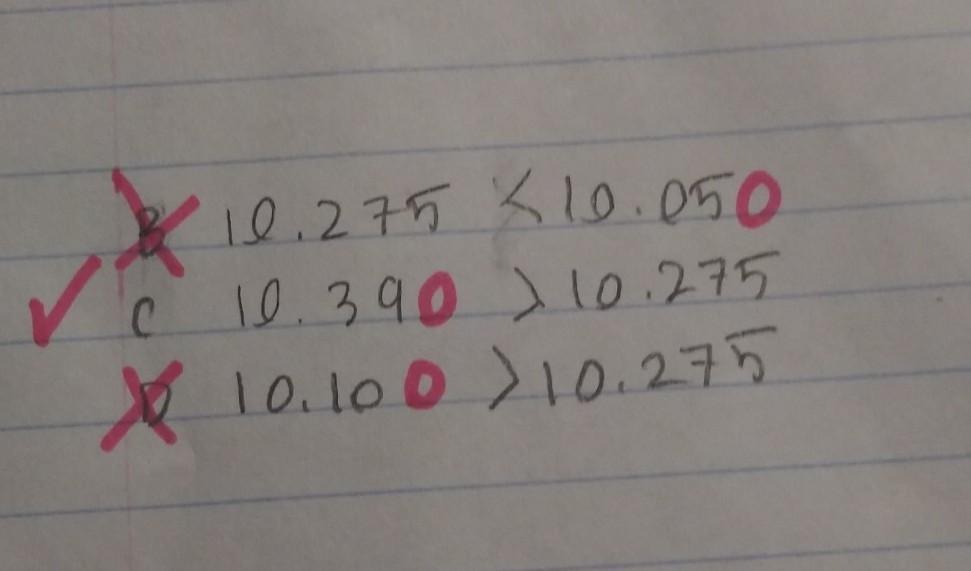 B 10.275 < 10.050
C 10.390 > 10.275
D 10.100 > 10.275